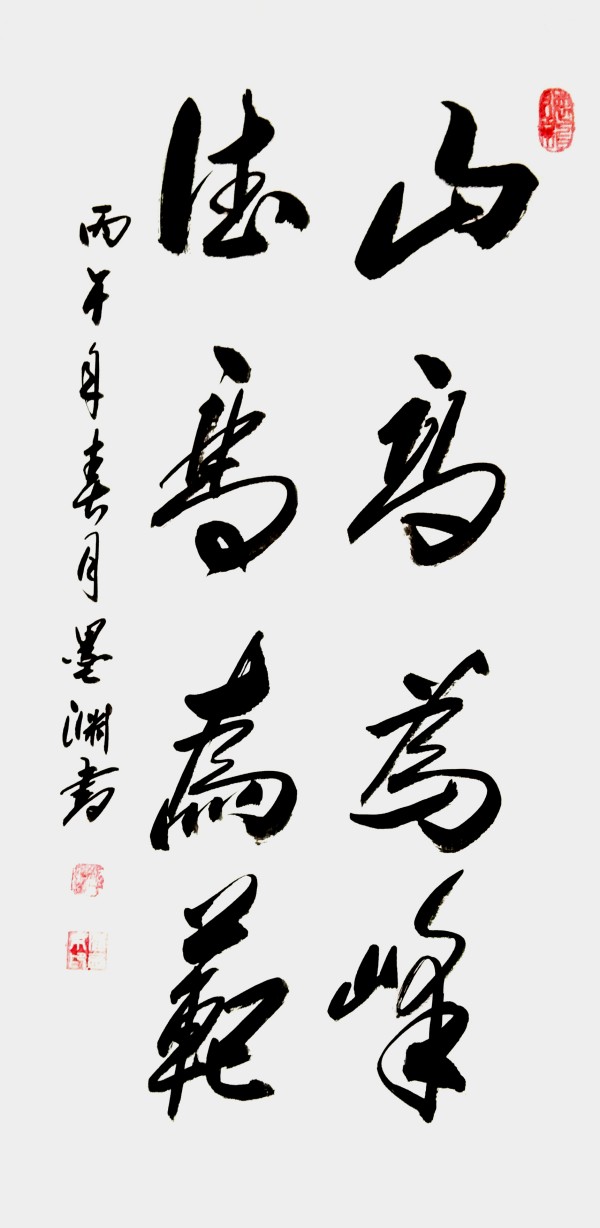 山高為峰
德高為範
丙午年春月墨淵書